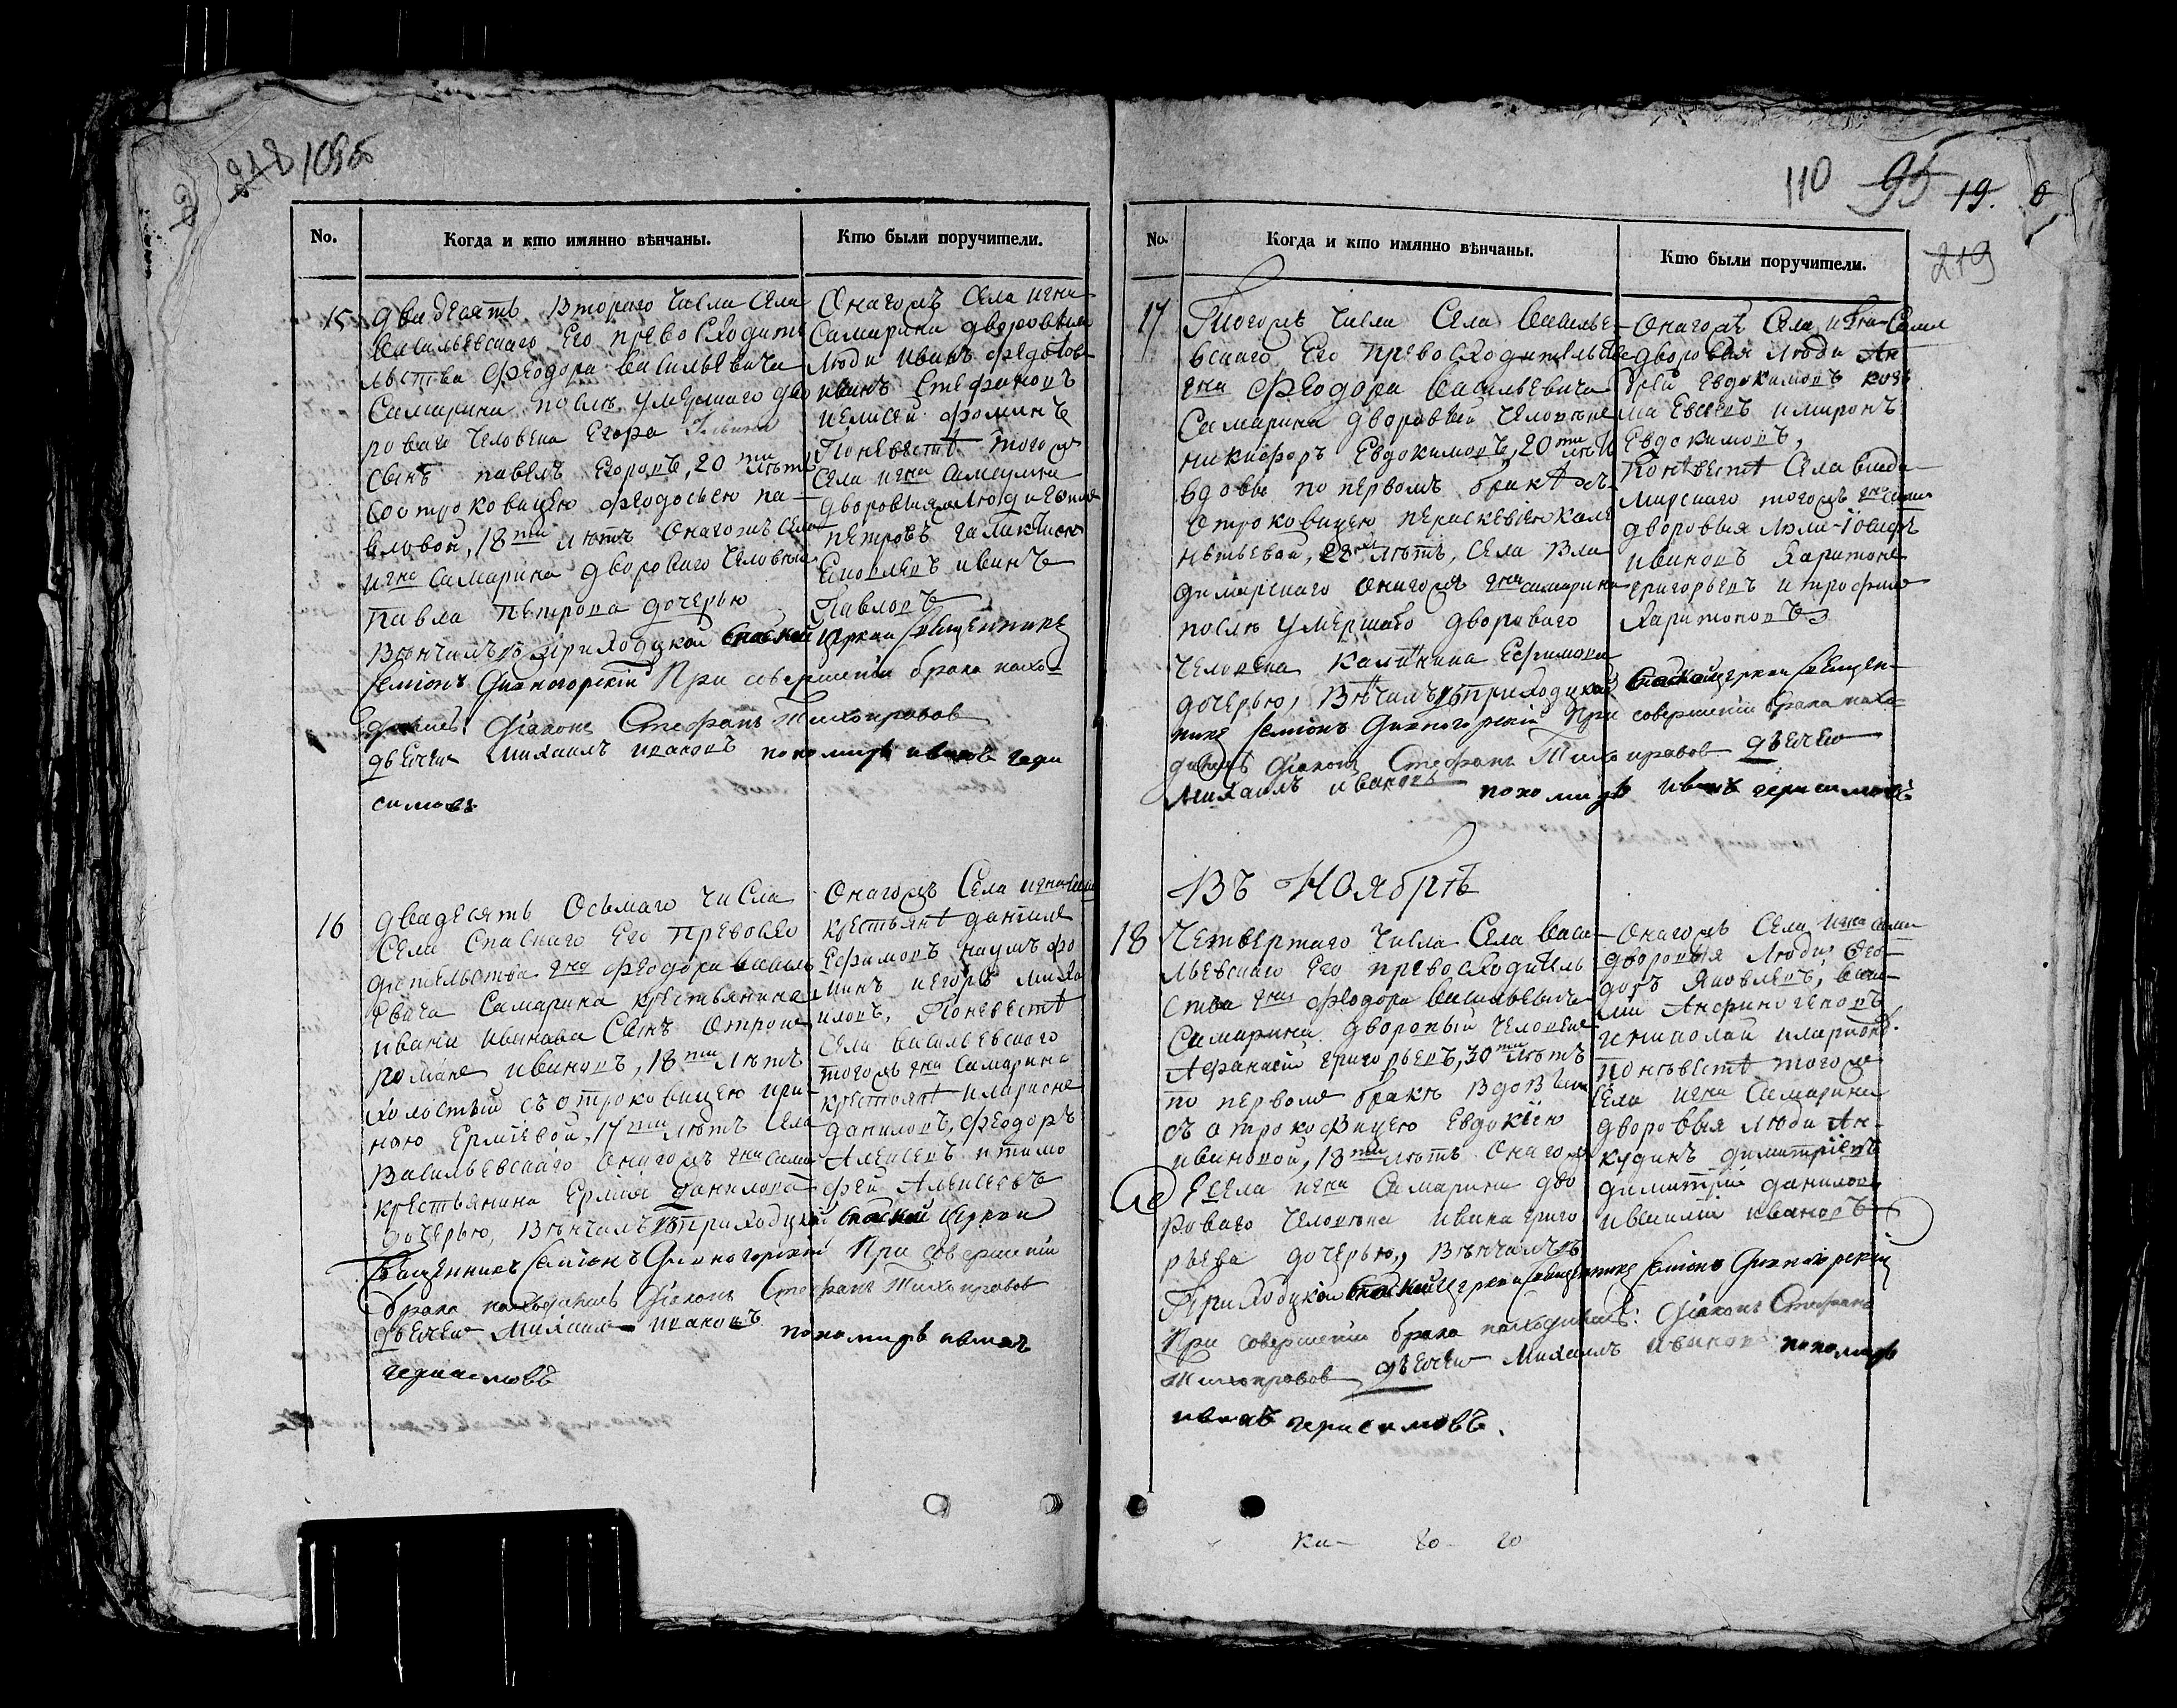 218 109об
No.
Когда и кто имянно вѣнчаны.
Кто были поручители.
15
Двадесять Втораго числа Села
Васильевскаго Его превосходите
льства Феодора Васильевича
Самарина послѣ умершаго дво
роваго человека Егора
сынъ павелъ Егоровъ, 20 ти лѣтъ
со отроковицею Феодосьею па-
вловой, 18 ти лѣтъ Онагожъ села
и гна Самарина дворового человека
Павла Петрова дочерью
Вѣнчалъ приходцкой Спаской Церкви Священникъ
Семіонъ Дивногорскій При совершеніи брака нахо-
дились: Діаконъ Стефанъ Тихонравов
дьечекъ Михаилъ ивановъ пономарь иванъ гера
симовъ
Онагожъ Села и гна
Самарина дворовыя
Люди иванъ Федотов
иванъ Стефановъ
иелисей Фоминъ
Поневестѣ тогожъ
Села и гна Самарина
дворовыя люди
петровъ Галактион
Яковлевъ иванъ
Павловъ
16
двадесять Осьмаго числа
Села Спаскаго Его Превосхо
дительства гна Феодора Василь
евича Самарина крестьянина
ивана иванова Сынъ Отрокъ
романъ ивановъ, 18 ти лѣтъ
холостый съ отроковицею ири-
ною Ермиевой, 17 ти лѣтъ Села
Васильевскаго Онагожъ гна Сама
крестьянина Ермия данилова
дочерью, Вѣнчалъ приходцкой Спаской Церкви
Священникъ Семіонъ Дивногорскій При совершеніи
брака находились Діаконъ Стефанъ Тихонравов
дьечекъ Михаилъ ивановъ пономарь иванъ
герасимовъ
Онагожъ Села и гна Сама
крестьянѣ данила
Ефимовъ наумъ фо
минъ иегоръ миха
иловъ, Поневестѣ
Села Васильевскаго
тогожъ гна Самарина
крестьянѣ иларионъ
даниловъ, Феодоръ
Алексеевъ итимо
фей Алексеевъ
110 95 19. 6
219
No.
Когда и кто имянно вѣнчаны.
Кто были поручители.
17
Тогожъ числа Села Василье-
вскаго Его превосходительства
гна Феодора Васильевича
Самарина дворовый человекъ
никифоръ Евдокимовъ, 20 ти лѣтъ
вдовъ по первомъ бракѣ съ
отроковицею параскевіею кали
, 22 лѣтъ, Села Вла
димирскаго Онагожъ гна Самарина
послѣ умершаго двороваго
человека Ефимова
дочерью, Вѣнчалъ приходцкой Спаской церкви Священ-
никъ Семіонъ Дивногорскій При совершеніи брака нахо-
дились Діаконъ Стефанъ Тихонравов дьечекъ
Михаилъ ивановъ пономарь иванъ герасимовъ
Онагожъ Села и гна Сама
дворовыя люди Ан
дрей Евдокимовъ козь
ма Евсеевъ имиронъ
Евдокимовъ,
Поневестѣ Села влади
мирскаго тогожъ гна Самар
дворовыя люди Іосифъ
ивановъ Харитонъ
григорьевъ итрофимъ
Харитоновъ
Въ Ноябрѣ
18
Четвертаго числа Села Васи
льевскаго Его превосходитель
ства гна Феодора Васильевича
Самарина дворовый человекъ
Афанасій григорьевъ, 30 ти лѣтъ
по первомъ бракѣ Вдовъ
съ отроковицею Евдокіею
ивановой, 18 ти лѣтъ Онаго
же села и гна Самарина дво
роваго человека ивана григо
рьева дочерью, Вѣнчалъ
Приходцкой Спаской Церкви Священникъ Семіонъ Дивногорскій
При совершеніи брака находились: Діаконъ Стефанъ
Тихонравов дьечекъ Михаилъ ивановъ пономарь
иванъ герасимовъ.
Онагожъ Села и гна Сама
дворовыя Люди Фео-
доръ Яковлевъ, васи-
лій Анфиногеновъ
иниколай иларіоновъ.
поневестѣ тогожъ
Села и гна Самарина
дворовыя люди Ан-
кудинъ димитріевъ
димитрій данилов
ивасилій ивановъ